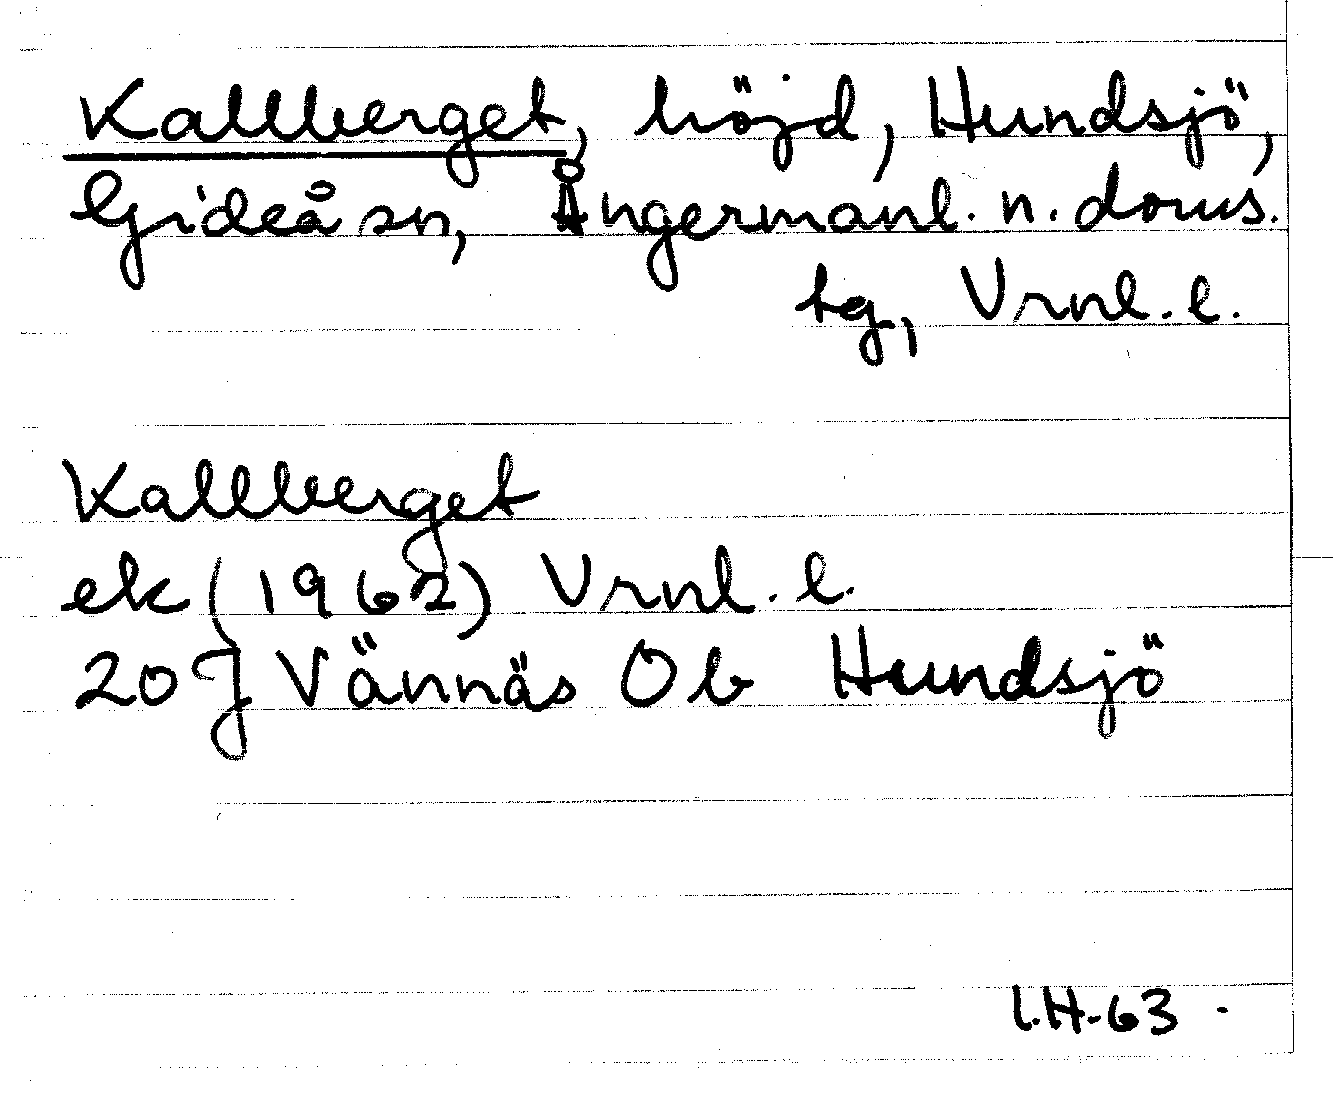 Kallberget, höjd, Hundsjö,
Gideå sn, Ångermanl. n. doms.
tg, Vrnl. l.
Kallberget
ek (1962) Vrnl. l.
20 J Vännäs Ob Hundsjö
I.H-63